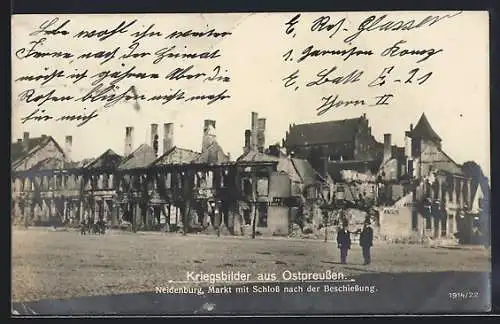 Lebe wohl ihr weiter
Ferne nach der Heimat
möcht ich gähren aber die
Rosen blühen nicht mehr
für mich
E. Rof. Glasser
1. garnison Komp
E. Batl E 21
Thorn II
Kriegsbilder aus Ostpreußen.
Neidenburg, Markt mit Schloß nach der Beschießung.
1914/22